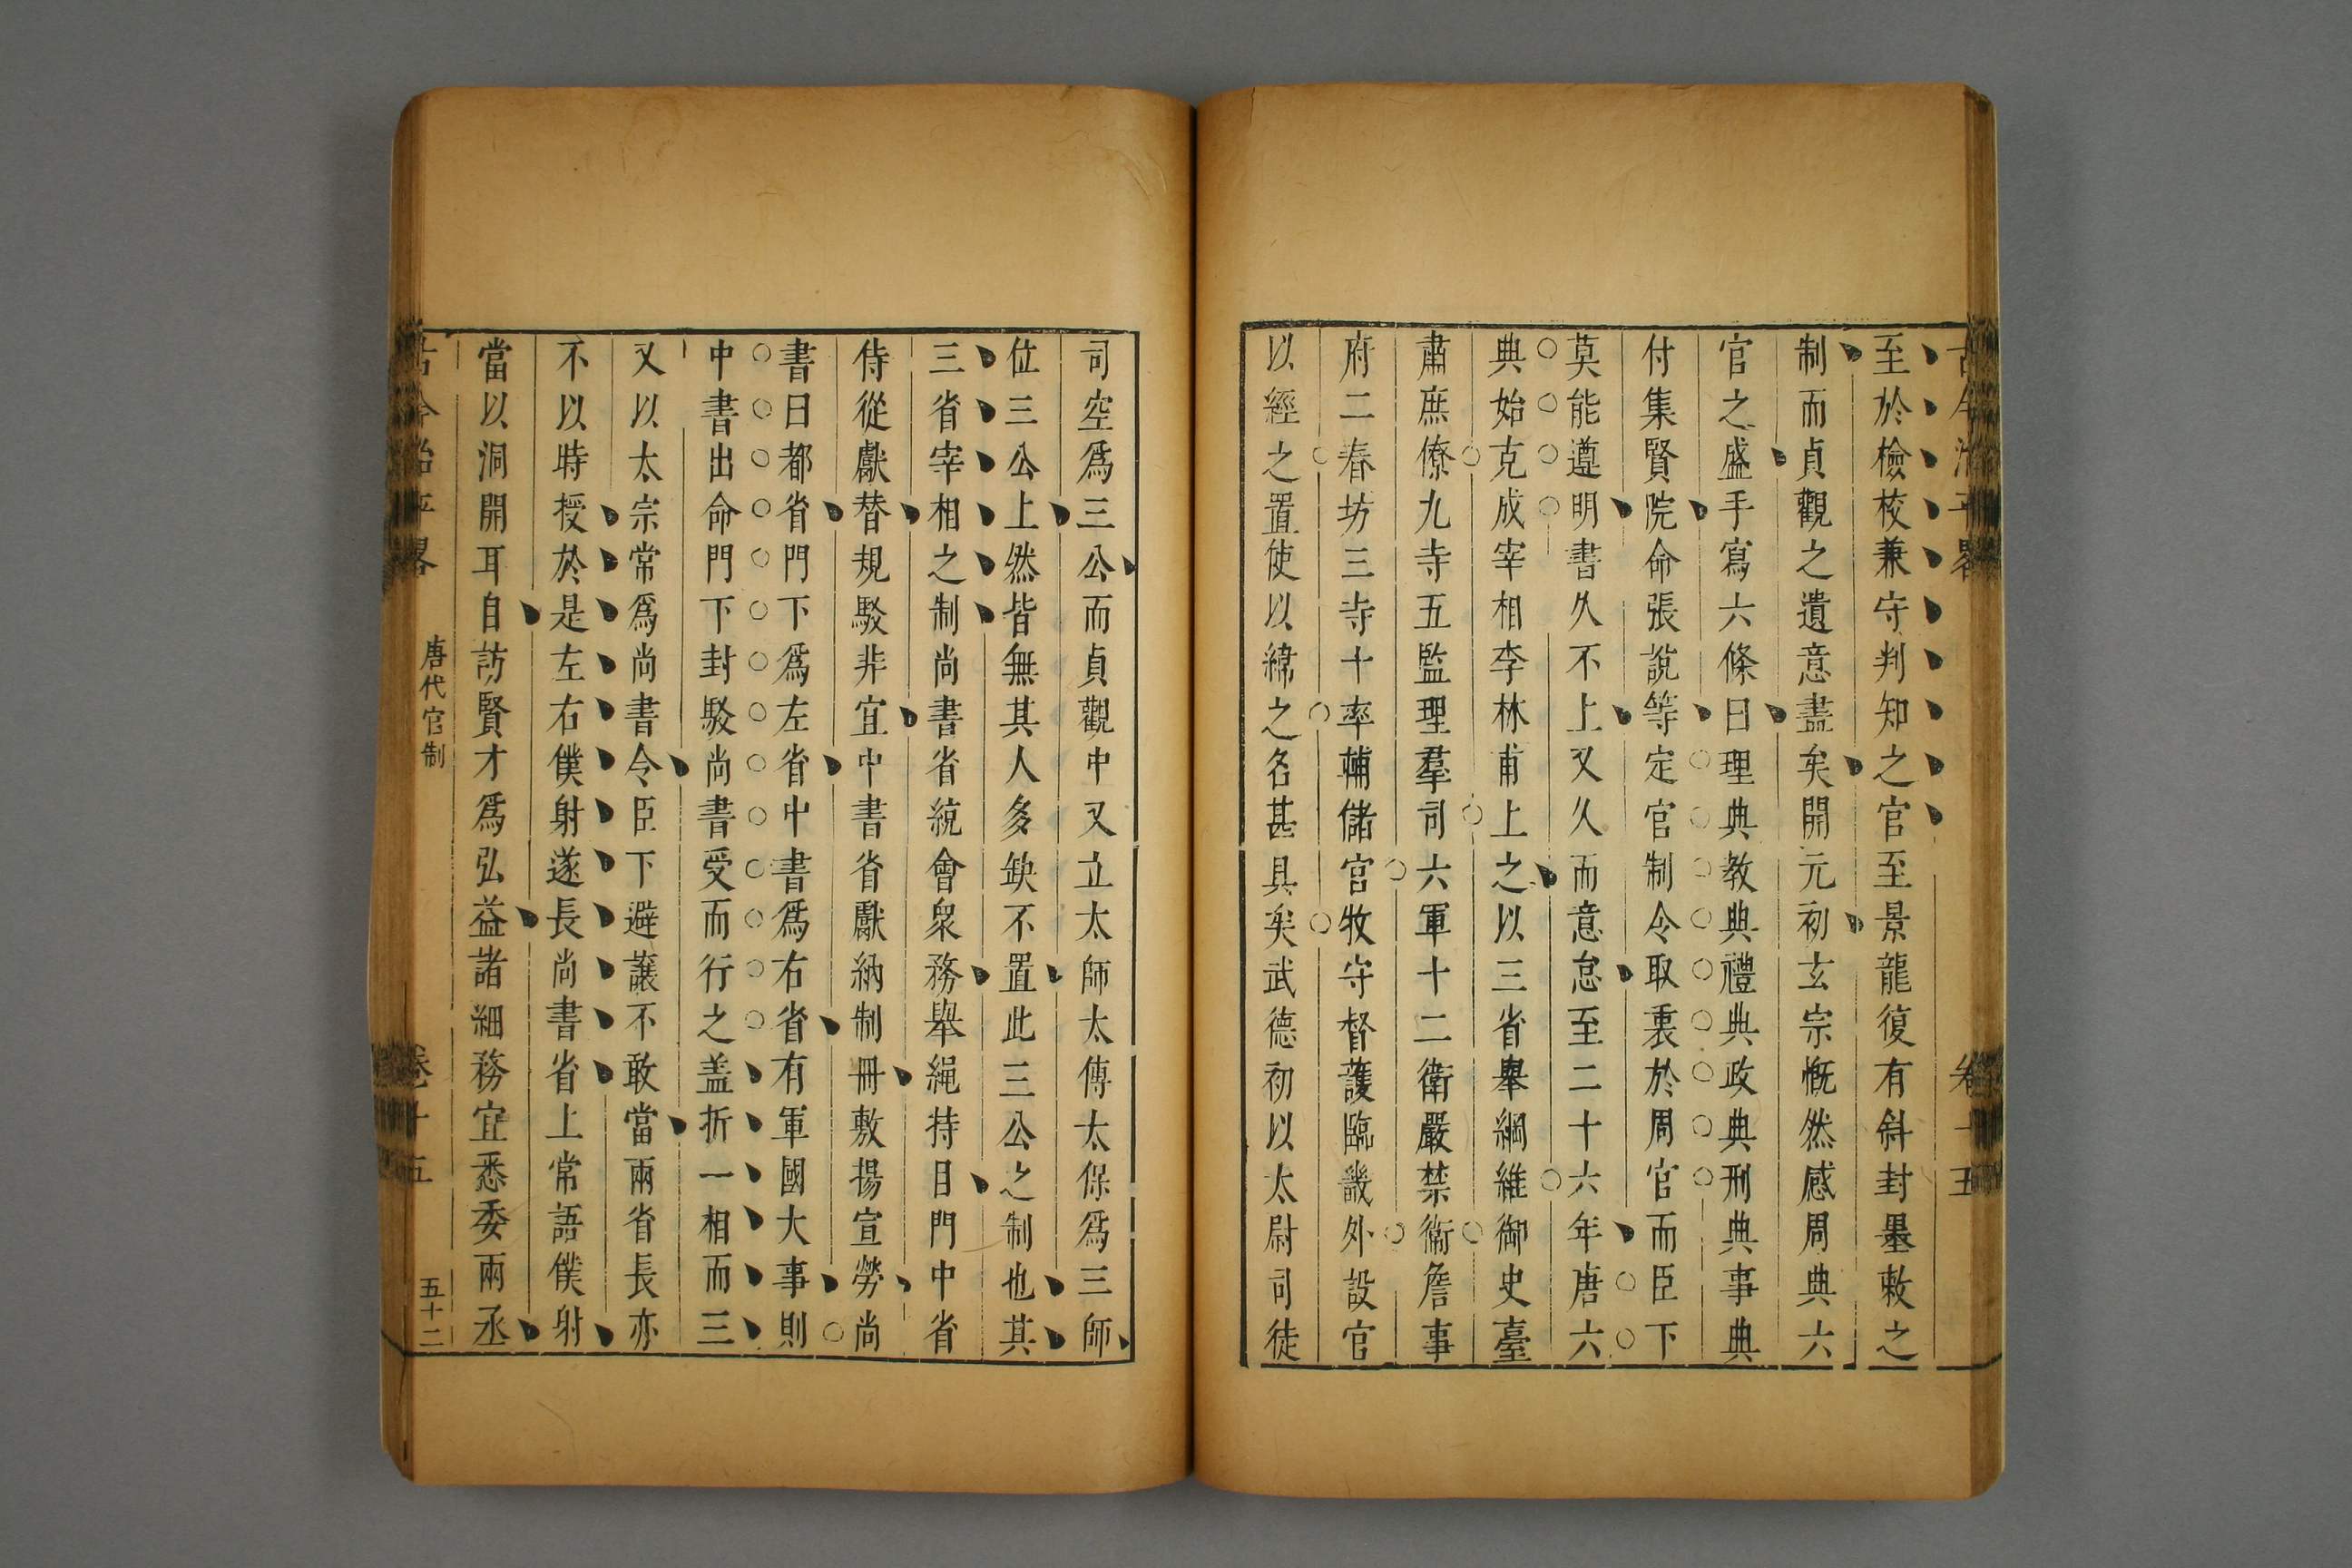 古今治平畧 卷十五
至於檢校兼守判知之官至景龍復有斜封墨敕之
制而貞觀之遺意盡矣開元初玄宗慨然感周典六
官之盛手寫六條曰理典教典禮典政典刑典事典
付集賢院命張說等定官制令取裏於周官而臣下
莫能遵明書久不上又久而意怠至二十六年唐六
典始克成宰相李林甫上之以三省舉綱維御史臺
肅庶僚九寺五監理羣司六軍十二衛嚴禁衛詹事
府二春坊三寺十率輔儲宮牧守督護臨畿外設官
以經之置使以緯之名甚具矣武德初以太尉司徒
司空爲三公而貞觀中又立太師太傅太保爲三師
位三公上然皆無其人多缺不置此三公之制也其
三省宰相之制尚書省統會衆務舉繩持目門中省
侍從獻替規駁非宜中書省獻納制冊敷揚宣勞尚
書曰都省門下爲左省中書爲右省有軍國大事則
中書出命門下封駁尚書受而行之盖折一相而三
又以太宗常爲尚書令臣下避讓不敢當兩省長亦
不以時授於是左右僕射遂長尚書省上常語僕射
當以洞開耳目訪賢才爲弘益諸細務宜悉委兩丞
古今治平畧 唐代官制 卷十五 五十二